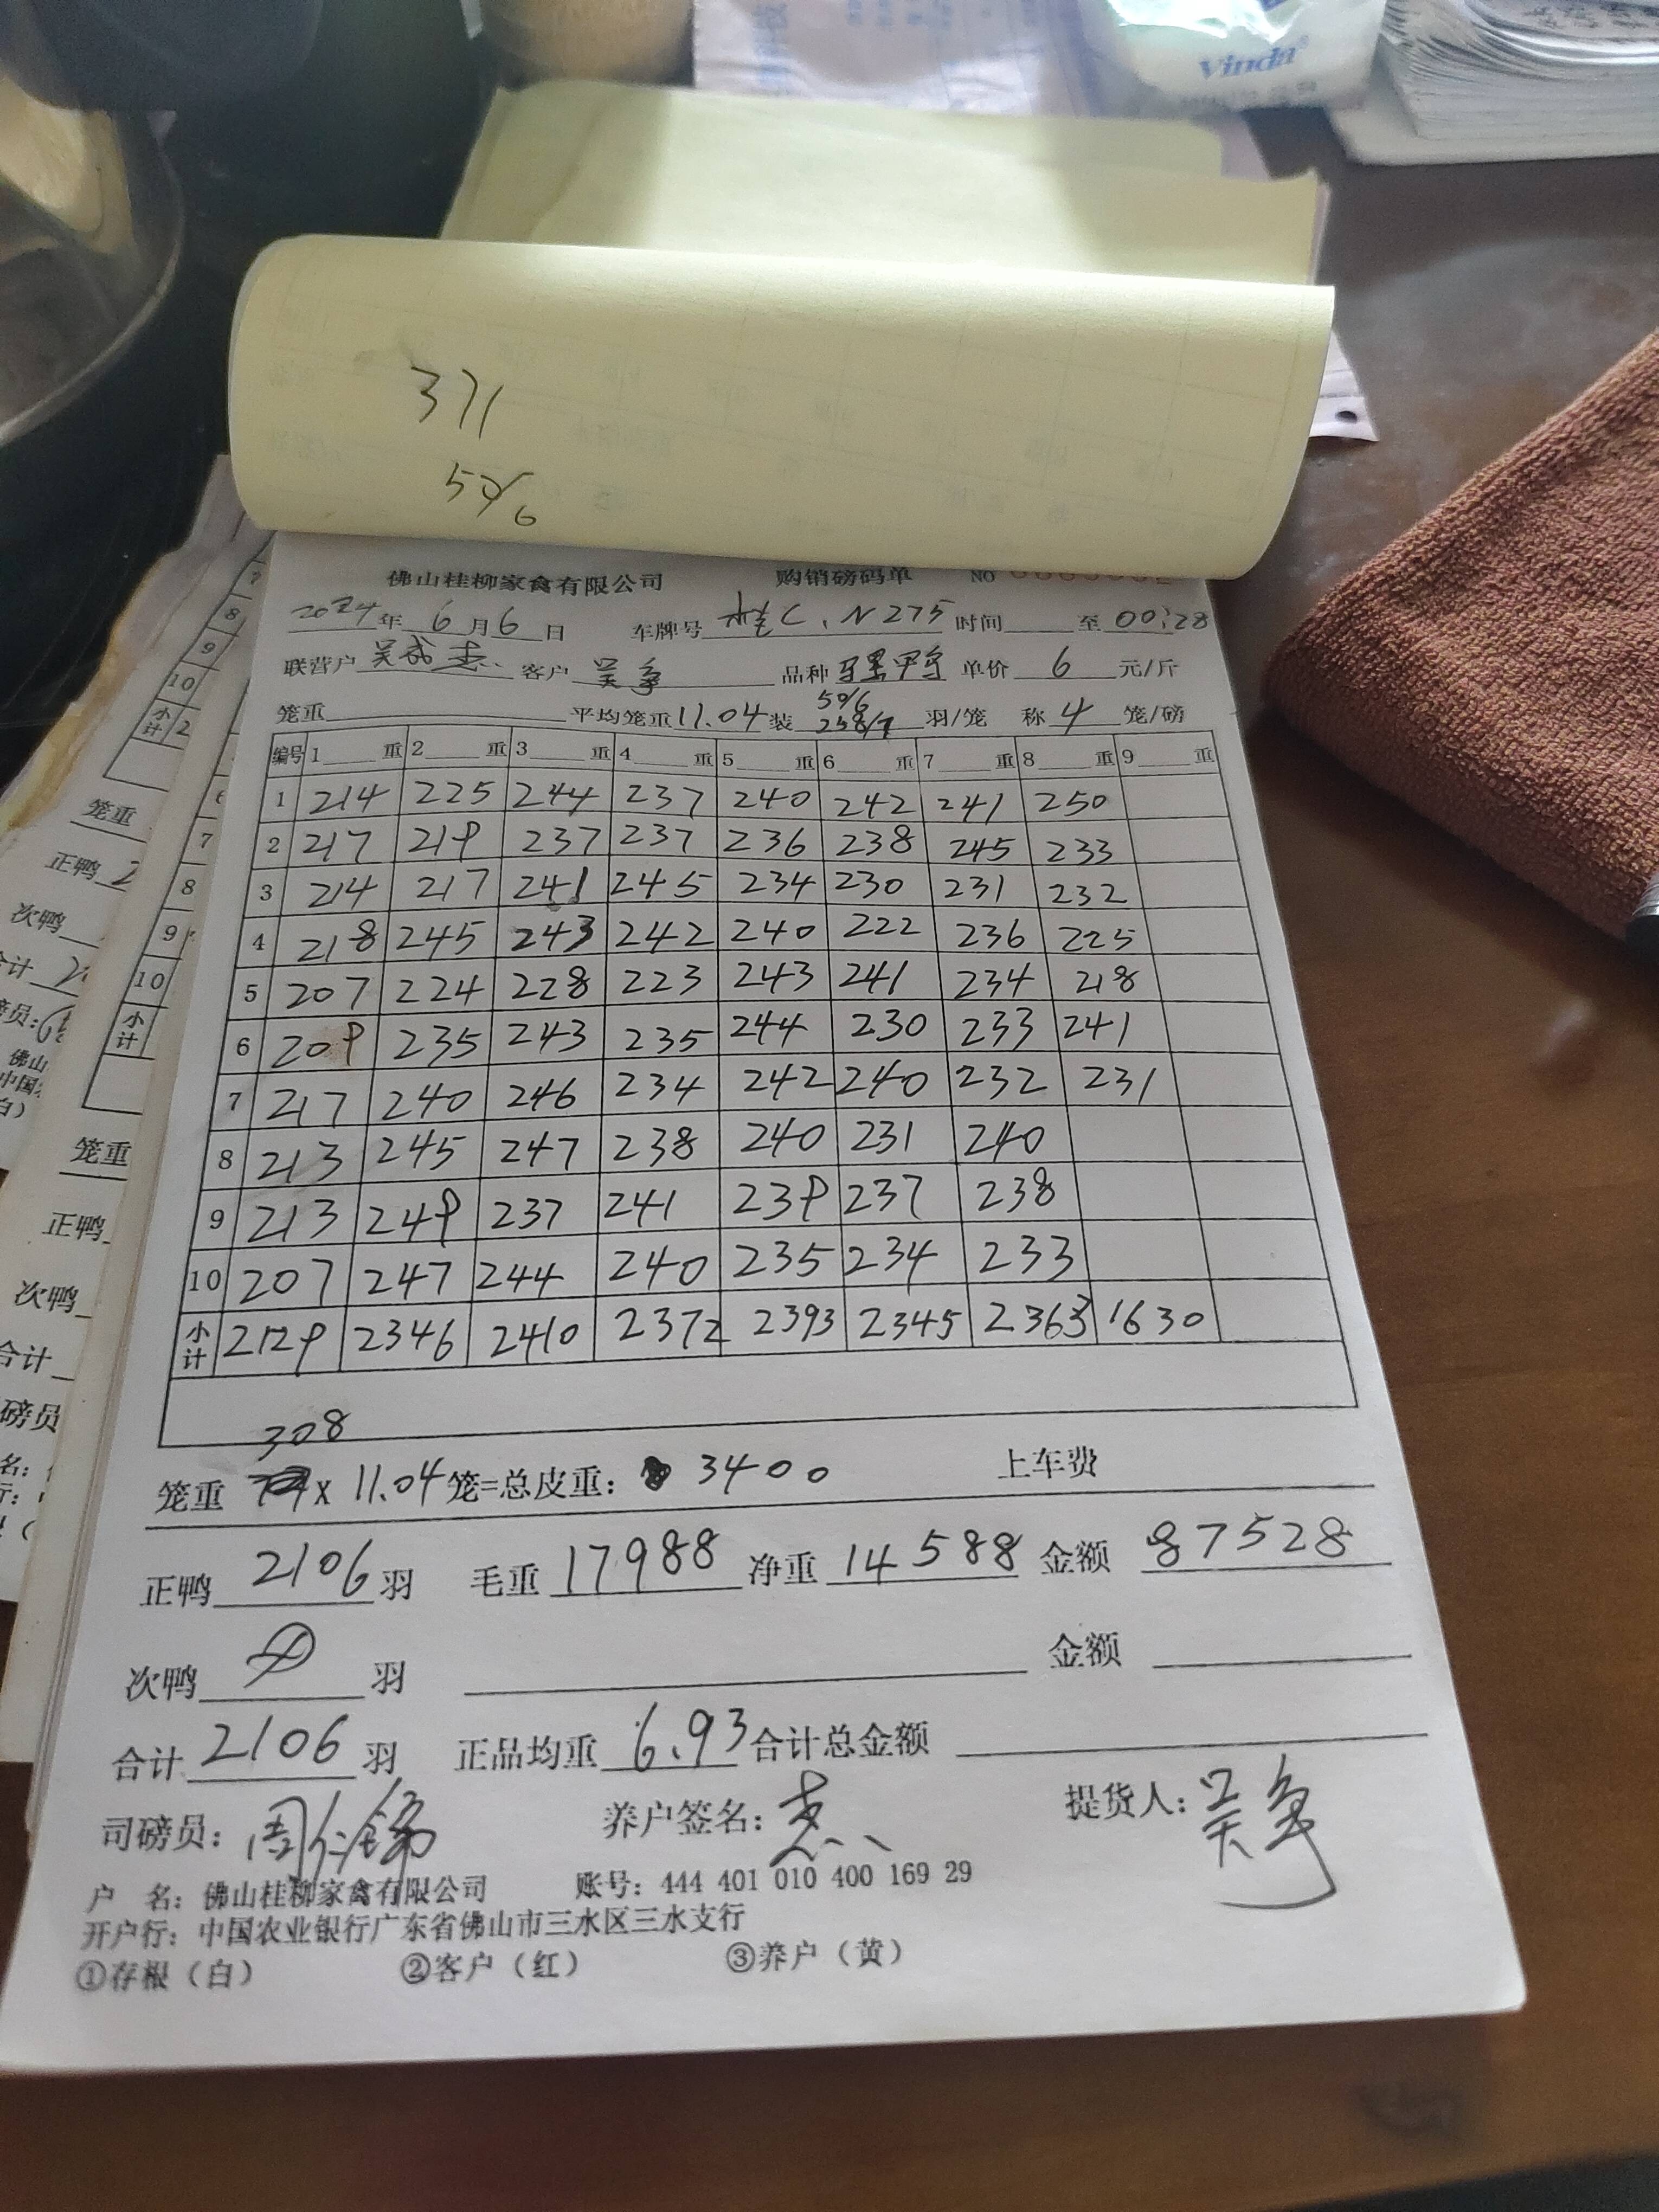 Vinda
371
50/6
佛山桂柳家禽有限公司 购销磅码单 NO
2024年 6月6日 车牌号 桂C.N275 时间 至 00:28
联营户 吴成志 客户 吴争 品种 单价 6 元/斤
50/6
笼重 平均笼重 11.04 装 258/7 羽/笼 称 4 笼/磅
编号 1 重 2 重 3 重 4 重 5 重 6 重 7 重 8 重 9 重
1 214 225 244 237 240 242 241 250
2 217 219 237 237 236 238 245 233
3 214 217 241 245 234 230 231 232
4 218 245 243 242 240 222 236 225
5 207 224 228 223 243 241 234 218
6 209 235 243 235 244 230 233 241
7 217 240 246 234 242 240 232 231
8 213 245 247 238 240 231 240
9 213 249 237 241 239 237 238
10 207 247 244 240 235 234 233
小计 2129 2346 2410 2372 2393 2345 2363 1630
308
笼重 x 11.04 笼=总皮重: 3400 上车费
正鸭 2106 羽 毛重 17988 净重 14588 金额 87528
次鸭 羽 金额
合计 2106 羽 正品均重 6.93 合计总金额
司磅员: 周仁锦 养户签名: 志 提货人: 吴争
户 名: 佛山桂柳家禽有限公司 账号: 444 401 010 400 169 29
开户行: 中国农业银行广东省佛山市三水区三水支行
①存根(白) ②客户(红) ③养户(黄)